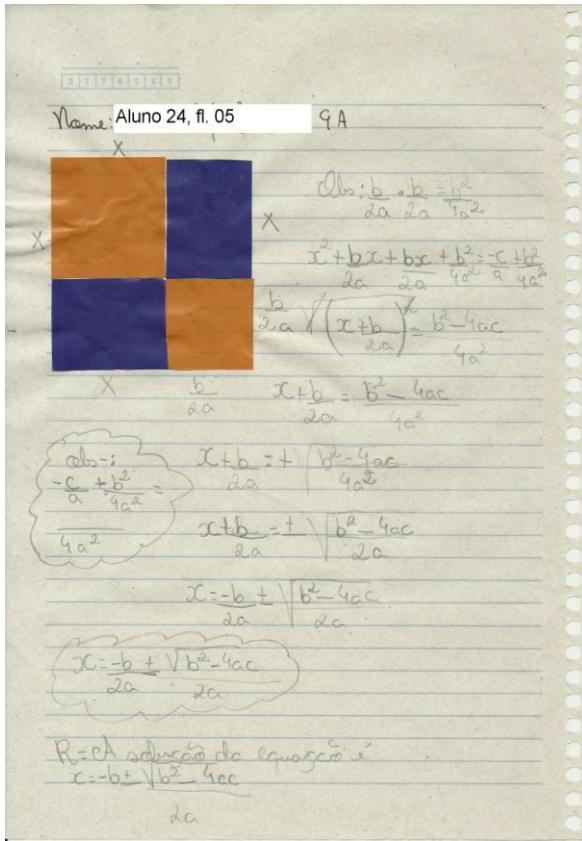 Nome: Aluno 24, fl. 05 9A
X
Obs: b/2a • b/2a = b²/4a²
X
X
x² + bx/2a + bx/2a + b²/4a² = -c/a + b²/4a²
b/2a
√(x+b/2a)² = b²-4ac/4a²
X
b/2a
x+b/2a = b² - 4ac/4a²
obs-:
-c/a + b²/4a² =
/4a²
x+b/2a = ± √b²-4ac/4a²
x+b/2a = ± √b²-4ac/2a
x=-b/2a ± √b²-4ac/2a
x=-b/2a ± √b²-4ac/2a
R=A solução da equação é
x=-b± √b²-4ac
2a